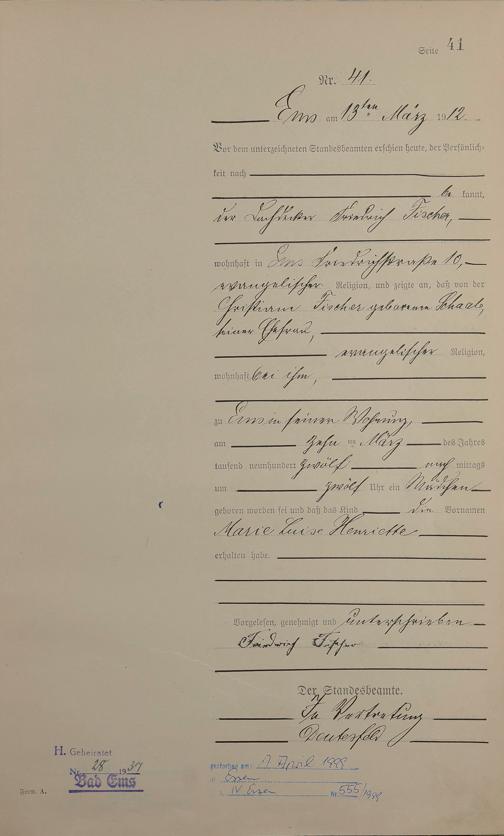 Seite 41
Nr. 41.
Ems am 13ten März 1912.
Vor dem unterzeichneten Standesbeamten erschien heute, der Persönlich-
keit nach
be kannt,
der Dachdecker Friedrich Fischer,
wohnhaft in Ems Friedrichstraße 10,
evangelischer Religion, und zeigte an, daß von der
Christiane Fischer geborene Schaab,
seiner Ehefrau,
evangelischer Religion,
wohnhaft bei ihm,
zu Ems in seiner Wohnung,
am zehn ten März des Jahres
tausend neunhundert zwölf nach mittags
um zwölf Uhr ein Mädchen
geboren worden sei und daß das Kind die Vornamen
Marie Luise Henriette
erhalten habe.
Vorgelesen, genehmigt und unterschrieben
Friedrich Fischer
Der Standesbeamte.
In Vertretung
H. Geheiratet
Nr. 28 1937
Bad Ems
Form. A.
gestorben am: 1. April 1998
in Essen
IV Essen Nr 555/1998